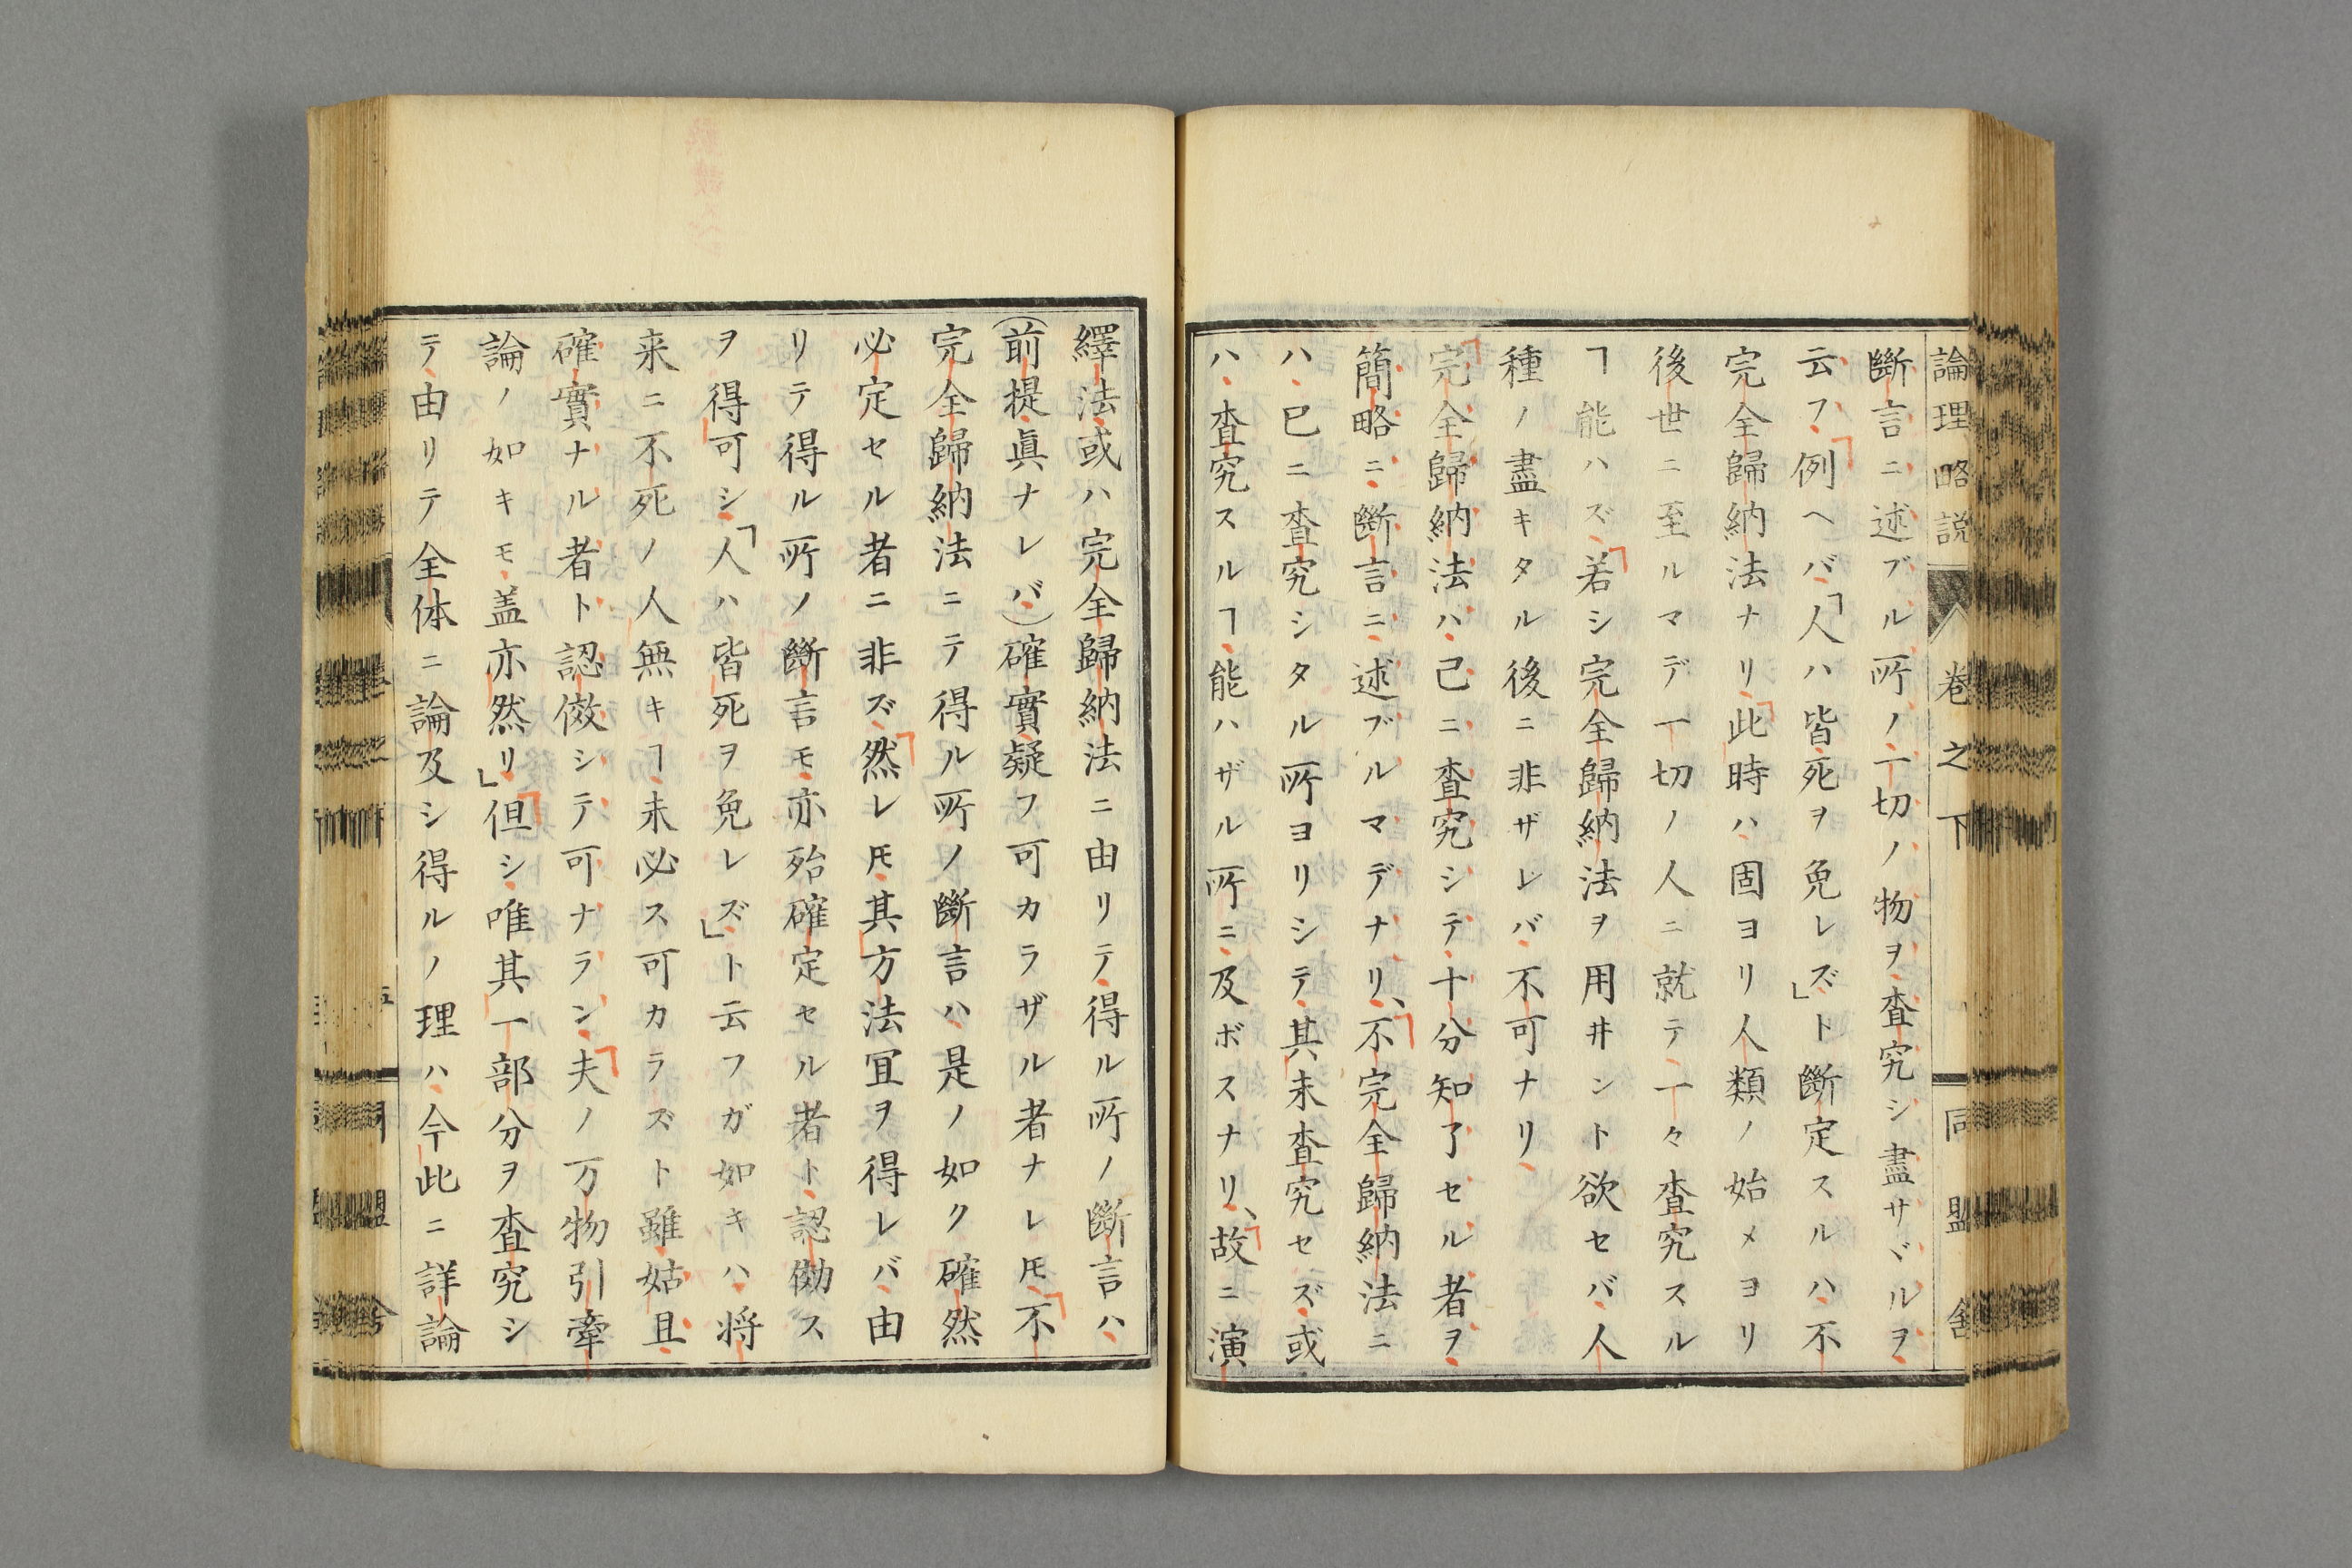 論理略説 巻之下 同盟舎
斷言ニ述ブル所ノ一切ノ物ヲ査究シ盡サヾルヲ
云フ例ヘバ「人ハ皆死ヲ免レズ」ト斷定スルハ不
完全歸納法ナリ此時ハ固ヨリ人類ノ始メヨリ
後世ニ至ルマデ一切ノ人ニ就テ一々査究スル
ヿ能ハズ若シ完全歸納法ヲ用井ント欲セバ人
種ノ盡キタル後ニ非ザレバ不可ナリ
完全歸納法ハ己ニ査究シテ十分知了セル者ヲ
簡略ニ斷言ニ述ブルマデナリ、不完全歸納法ニ
ハ已ニ査究シタル所ヨリシテ其未査究セズ或
ハ査究スルヿ能ハザル所ニ及ボスナリ、故ニ演
繹法或ハ完全歸納法ニ由リテ得ル所ノ斷言ハ
(前提眞ナレバ)確實疑フ可カラザル者ナレ𪜈不
完全歸納法ニテ得ル所ノ斷言ハ是ノ如ク確然
必定セル者ニ非ズ然レ𪜈其方法冝ヲ得レバ由
リテ得ル所ノ斷言モ亦殆確定セル者ト認傚ス
ヲ得可シ「人ハ皆死ヲ免レズ」ト云フガ如キハ将
来ニ不死ノ人無キヿ未必ス可カラズト雖姑且
確實ナル者ト認傚シテ可ナラン夫ノ万物引牽
論ノ如キモ盖亦然リ」但シ唯其一部分ヲ査究シ
テ由リテ全体ニ論及シ得ルノ理ハ今此ニ詳論